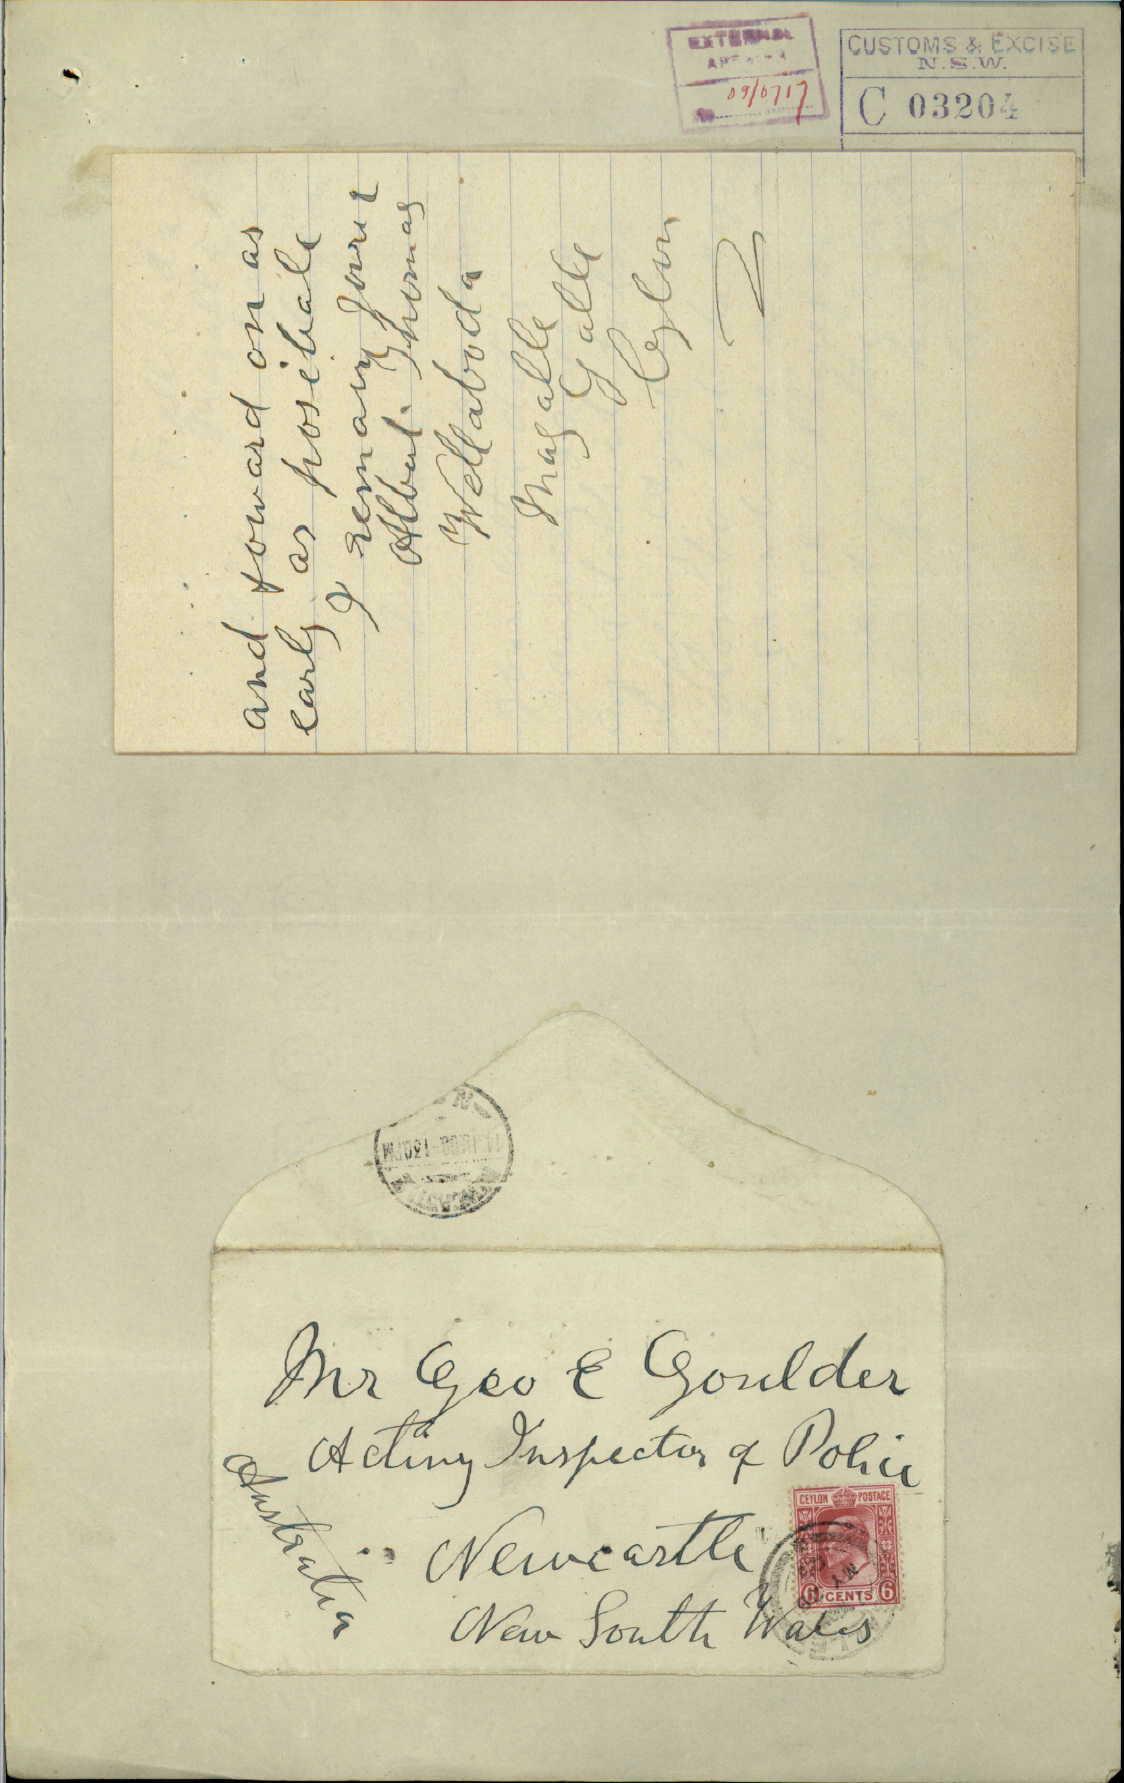 EXTERNAL
No 09/0717
CUSTOMS & EXCISE
N.S.W.
C 03204
and foward on as
early as posibale
I remain yours
Albert Thomas
Wellaboda
Magalle
Galle
Ceylon
Mr Geo E Goulder
Acting Inspector of Police
Newcastle
New South Wales
Australia
CEYLON POSTAGE
6 CENTS 6